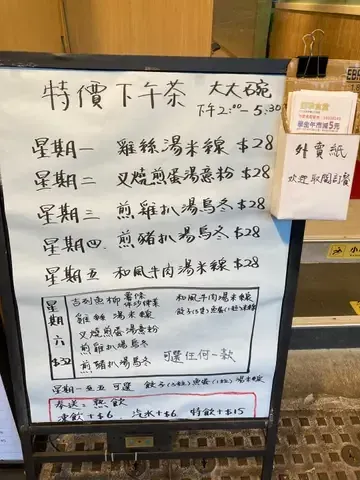 特價下午茶 大大碗
下午2:00-5:30
星期一 雞絲湯米線 $28
星期二 叉燒煎蛋湯意粉 $28
星期三 煎雞扒湯烏冬 $28
星期四 煎豬扒湯烏冬 $28
星期五 和風牛肉湯米線 $28
星期六 $32
吉列魚柳 薯條
和風牛肉湯米線
雞絲湯米線
叉燒煎蛋湯意粉
煎雞扒湯烏冬
煎豬扒湯烏冬
可選任何一款
星期一至五可選 餃子 魚蛋 湯米線
奉送:熱飲
凍飲+$6 汽水+$6 特飲+$15
外賣紙
歡迎取閱訂餐